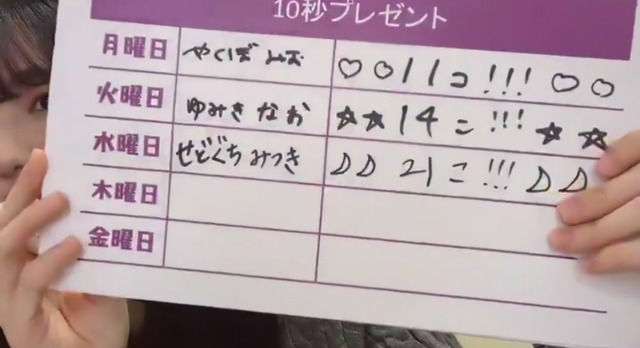 10秒プレゼント
月曜日 やくぼ みお ♡♡11コ!!!♡♡
火曜日 ゆみき なお ☆☆14こ!!!☆☆
水曜日 せどぐち みつき 21こ!!!
木曜日
金曜日